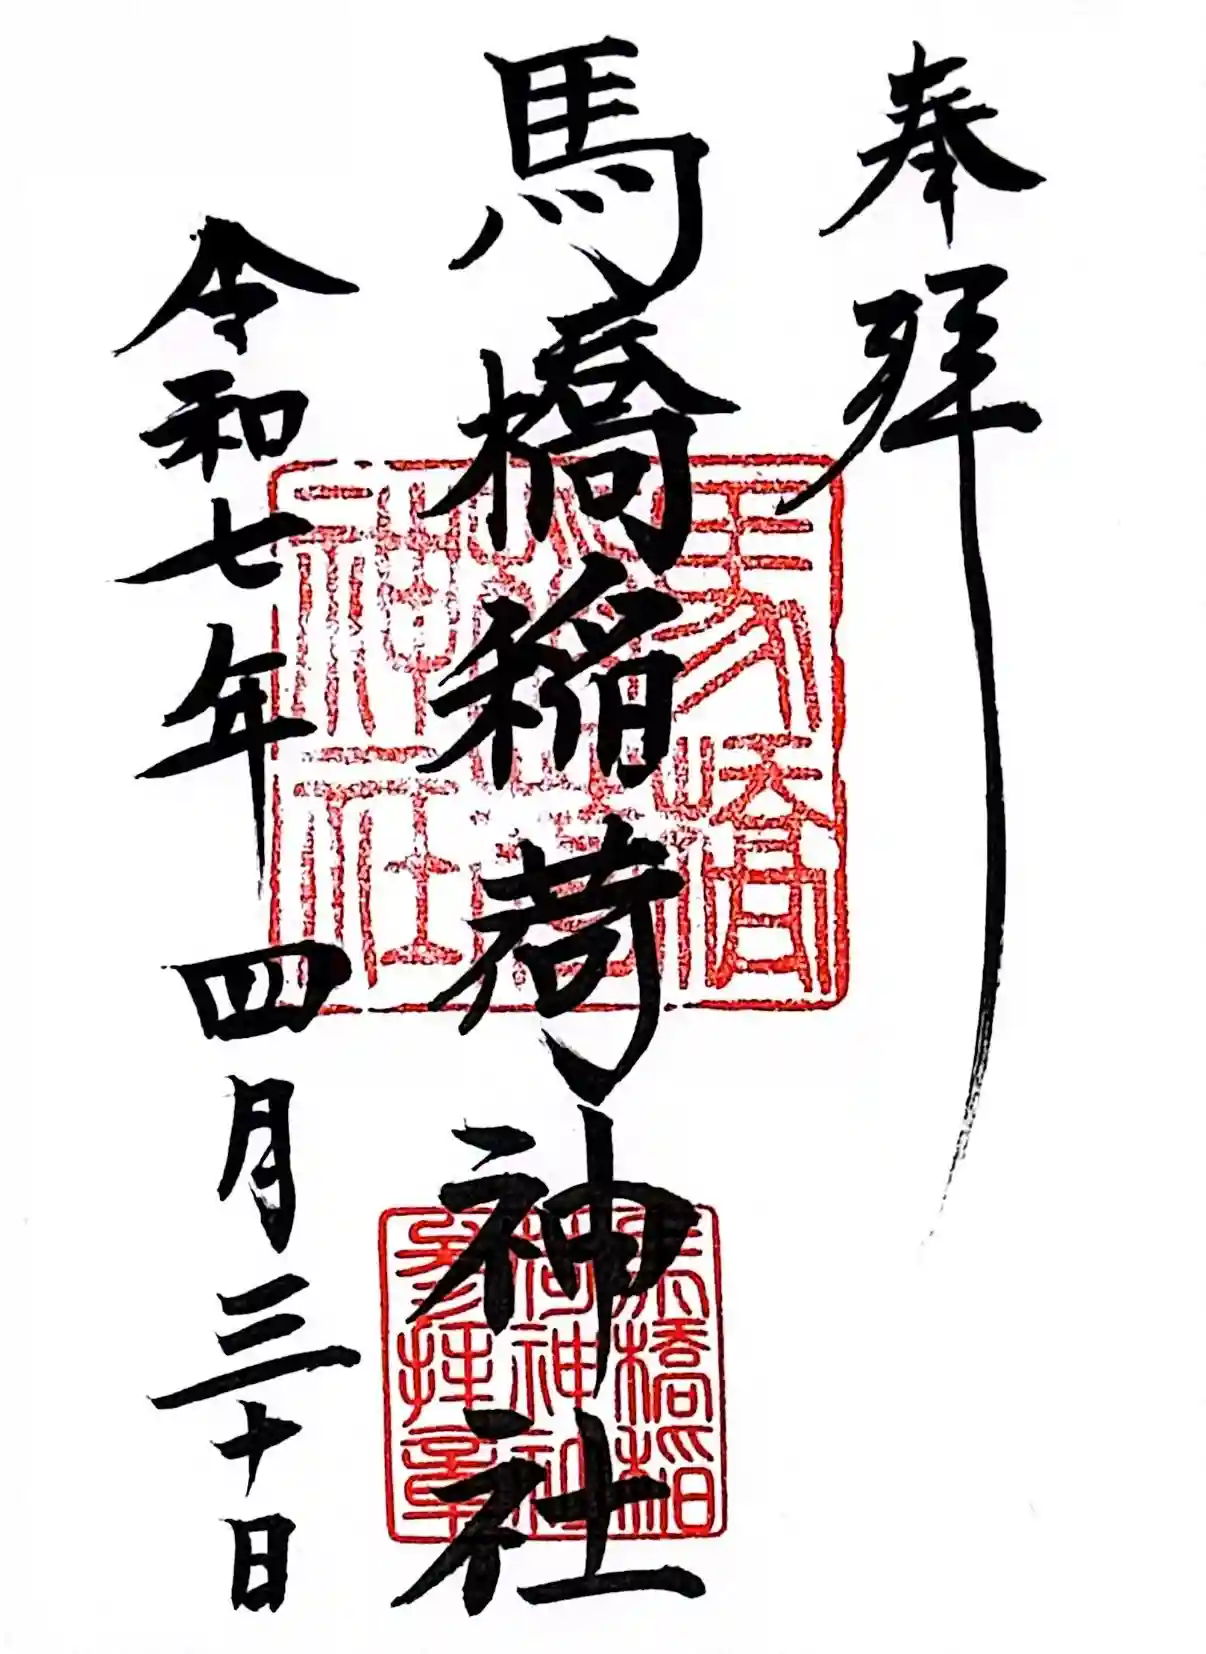 奉拝
馬橋稲荷神社
令和七年 四月三十日
馬橋
稲荷
神社
馬橋稲
荷神社
参拝章